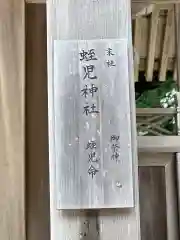 末社
蛭児神社
御祭神
蛭児命